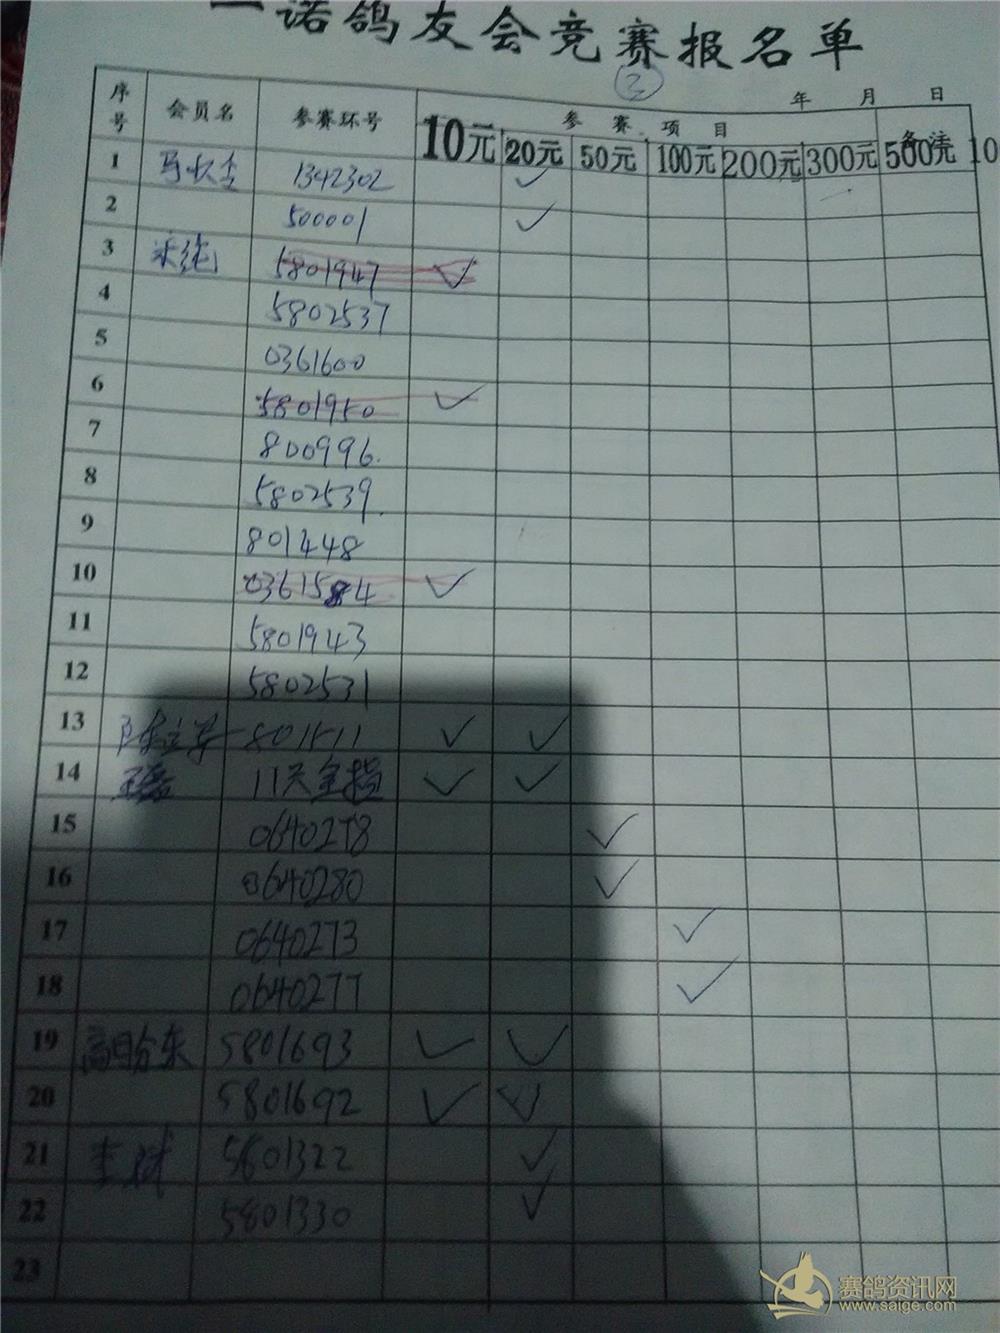 一诺鸽友会竞赛报名单
②
年 月 日
序号 会员名 参赛环号 参赛项目 备注
10元 20元 50元 100元 200元 300元 500元 10
1 1342302 ✓
2 500001 ✓
3 5801947 ✓
4 5802537
5 0361600
6 5801950 ✓
7 800996.
8 5802539.
9 801448
10 0361584 ✓
11 5801943
12 5802531
13 801511 ✓ ✓
14 11 ✓ ✓
15 0640278 ✓
16 0640280 ✓
17 0640273 ✓
18 0640277 ✓
19 5801693 ✓ ✓
20 5801692 ✓ ✓
21 李 5801322 ✓
22 5801330 ✓
23
赛鸽资讯网
www.saige.com